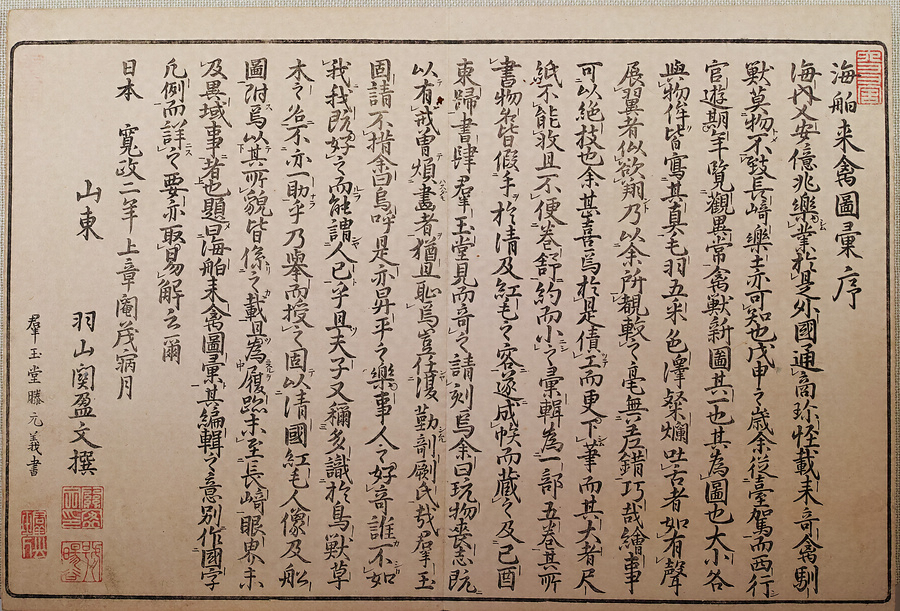 海舶来禽圖彙序
海内乂安億兆樂業於是外國通商珍怪載来奇禽馴
獸莫物不致長﨑樂土亦可知也戊申之歳余從臺駕而西行
官遊期年覽觀異常禽獸新圖其一也其為圖也大小各
與物侔皆寫其真毛羽五采色澤粲爛吐舌者如有聲
展翼者似欲翔乃以余所觀較之毫無差錯巧哉繪事
可以絶技也余甚喜焉於是債工而更下筆而其大者尺
紙不能收且不便巻舒約而小之彙輯為一部五巻其所
書物名皆假手於清及紅毛之客遂成帙而藏之及己酉
東歸書肆羣玉堂見而奇之請刻焉余曰玩物喪志既
以有戒曽煩畫者猶且恥焉豈得復勤剞劂氏哉羣玉
固請不措余曰烏呼是亦昇平之樂事人之好奇誰不如
我我既好之而能謂人已乎且夫子又稱多識於鳥獸草
木之名不亦一助乎乃擧而授之固以清國紅毛人像及舩
圖附焉以其所貌皆係之載且為履跡未至長﨑眼界未
及異域事者也題曰海舶来禽圖彙其編輯之意別作國字
凡例而詳之要亦取易解云爾
日本 寛政二年上章閹茂寎月
山東
羽山関盈文撰
羣玉堂滕元義書